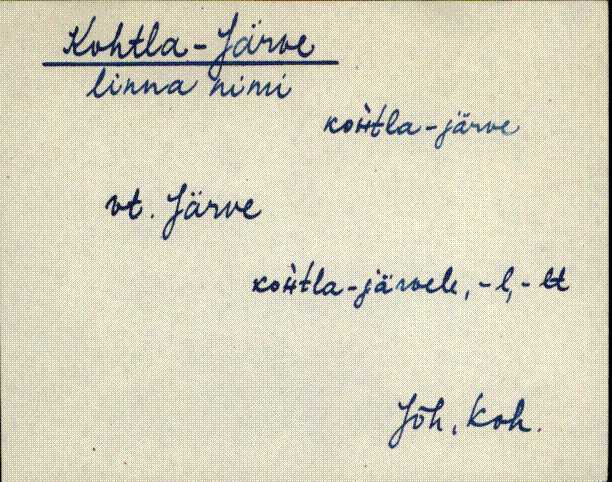 Kohtla-Järve
linna nimi
koʜ̀tla-järve
vt. Järve
koʜ̀tla-järvele, -l, -lt
Jõh, Koh.